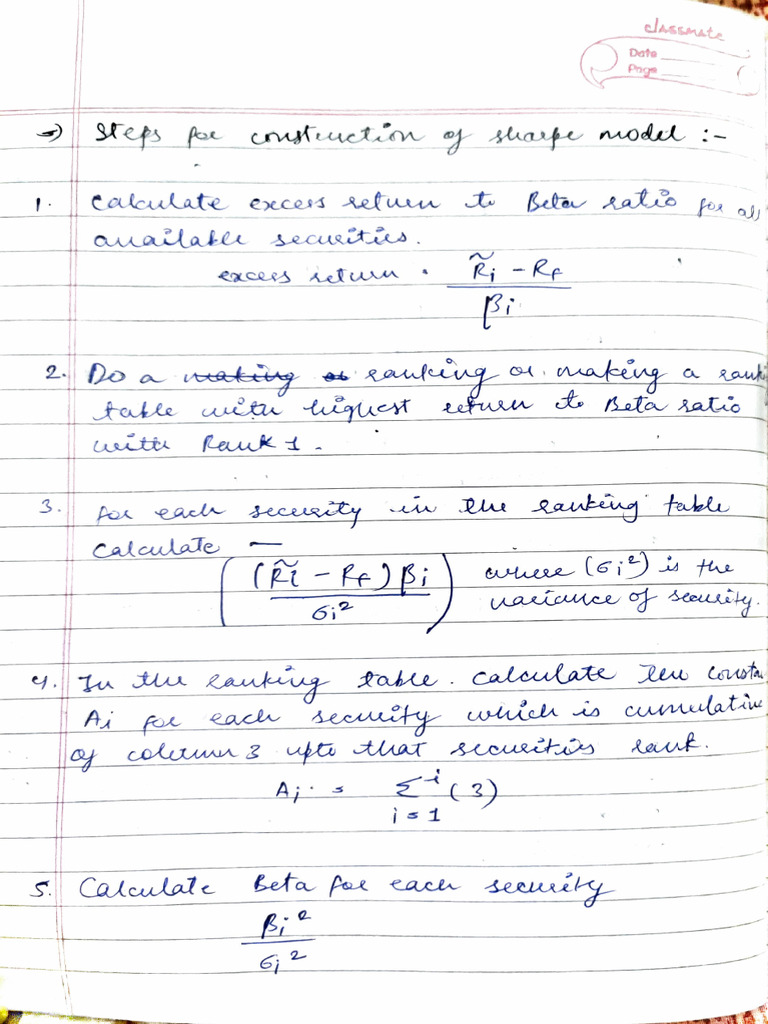 classmate
Date
Page
→) Steps for construction of sharpe model :-
1. Calculate excess return to Beta ratio for all
available securities.
excess return = (R̃i - Rf) / βi
2. Do a ~~making or~~ ranking or making a rank
table with highest return to Beta ratio
with Rank 1.
3. for each security in the ranking table
calculate —
( (R̃i - Rf) βi / σi² ) where (σi²) is the
variance of security.
4. In the ranking table. calculate the constan
Ai for each security which is cumulative
of column 3 upto that securities rank.
Ai = Σ^i_{i=1} (3)
5. Calculate Beta for each security
βi² / σi²